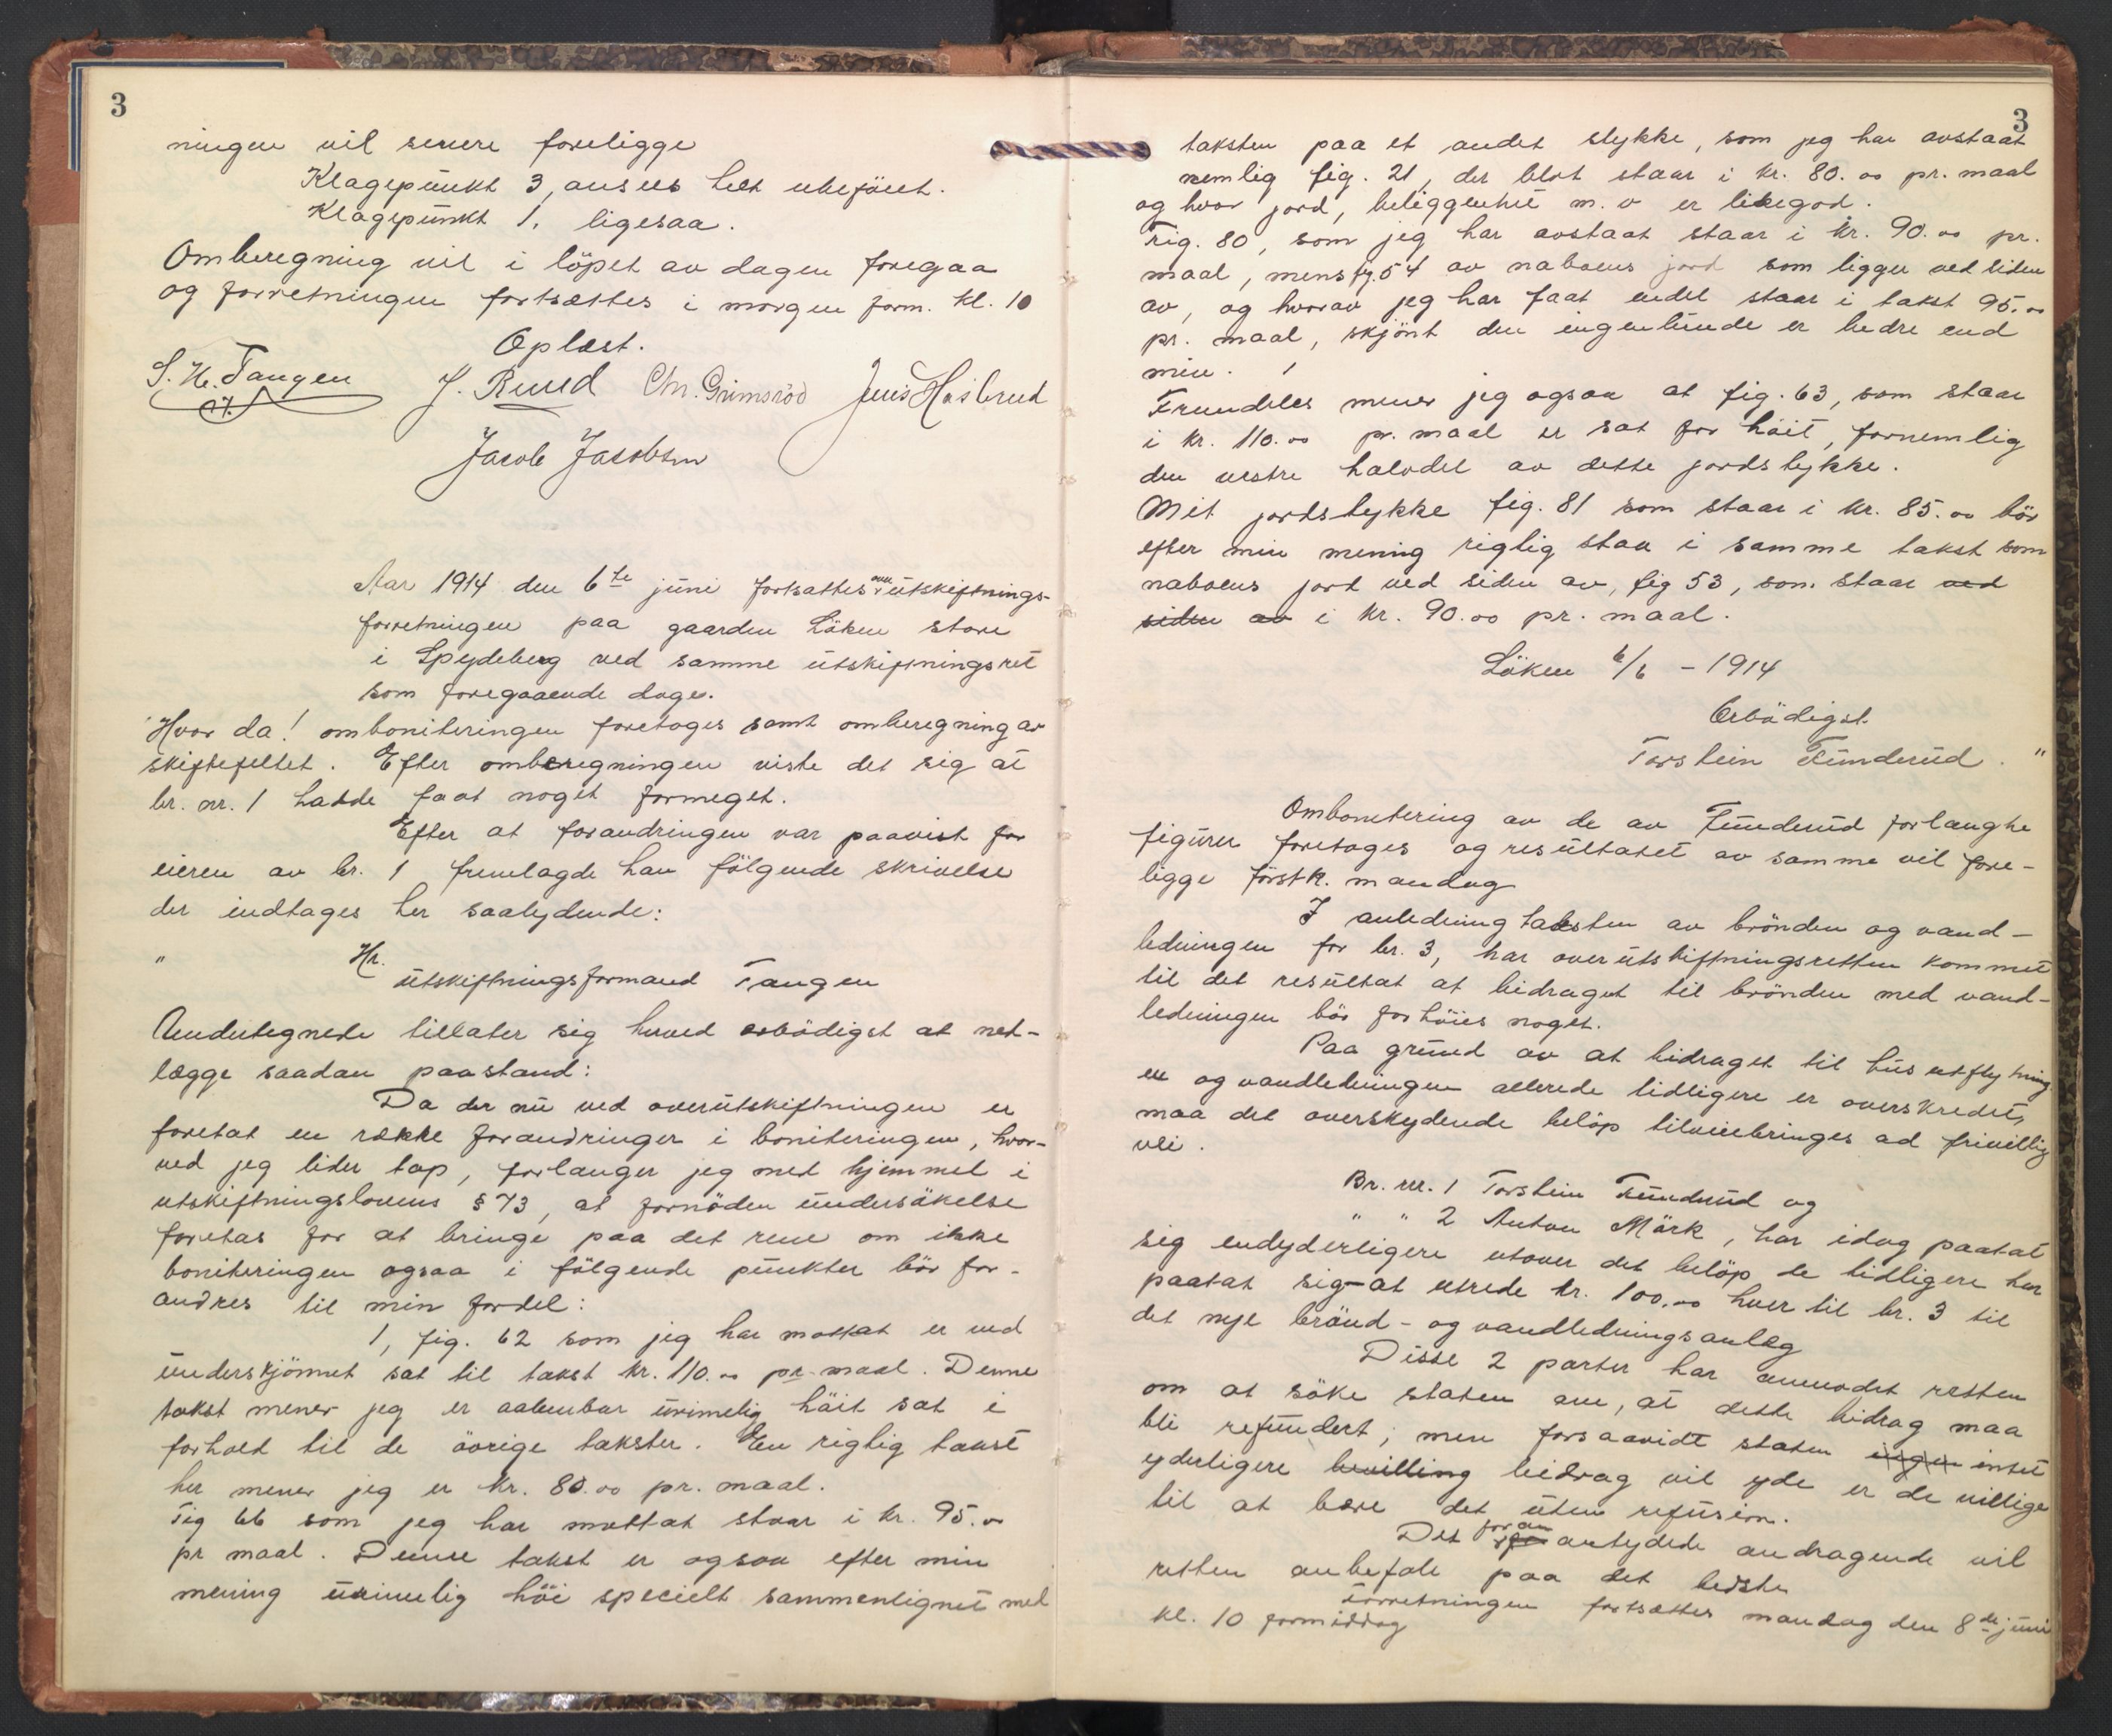 3
ningen vil senere foreligge
Klagepunkt 3, ansees helt ubeföiet.
Klagepunkt 1, ligesaa.
Omberegning vil i löpet av dagen foregaa
og forretningen fortsættes i morgen form. kl. 10
Oplæst.
S. H. Tangen J. Ruud Chr. Grimsröd Juris Hasbrud
Jacob Jacobsen
Aar 1914 den 6te juni fortsattes over utskiftnings-
forretningen paa gaarden Löken store
i Spydeberg ved samme utskiftningsret
som foregaaende dage.
Hvor da! omboniteringen foretoges samt omberegning av
skiftefeltet. Efter omberegningen viste det sig at
br. nr. 1 hadde faat noget formeget.
Efter at forandringen var paavist for
eieren av br. 1 fremlagde han fölgende skrivelse
der indtages her saalydende:
" Hr.
utskiftningsformand Tangen
Undertegnede tillater sig herved erbödigst at ned-
lægge saadan paastand:
Da der nu ved overutskiftningen er
foretat en række forandringer i boniteringen, hvor-
ved jeg lider tap, forlanger jeg med hjemmel i
utskiftningslovens § 73, at fornöden undersökelse
foretas for at bringe paa det rene om ikke
boniteringen ogsaa i fölgende punkter bör for-
andres til min fordel:
1, fig. 62 som jeg har mottat er ved
underskjönnet sat til takst kr. 110.00 pr. maal. Denne
takst mener jeg er aabenbar urimelig höit sat i
forhold til de övrige takster. En rigtig takst
her mener jeg er kr. 80.00 pr. maal.
Fig 66 som jeg har mottat staar i kr. 95.00
pr maal. Denne takst er ogsaa efter min
mening urimelig höi specielt sammenlignet med
3
taksten paa et andet stykke, som jeg har avstaat
nemlig fig. 21, der blot staar i kr. 80.00 pr. maal
og hvor jord, beliggenhet m.v er likegod.
Fig. 80, som jeg har avstaat staar i kr. 90.00 pr.
maal, mens fig. 54 av naboens jord som ligger ved siden
av, og hvorav jeg har faat endel staar i takst 95.00
pr. maal, skjönt den ingenlunde er bedre end
min.
Fremdeles mener jeg ogsaa at fig. 63, som staar
i kr. 110.00 pr. maal er sat for höit, fornemlig
den vestre halvdel av dette jordstykke.
Mit jordstykke fig. 81 som staar i kr. 85.00 bör
efter min mening rigtig staa i samme takst som
naboens jord ved siden av, fig 53, som staar ved
siden av i kr. 90.00 pr. maal.
Löken 6/6 - 1914
Erbödigst
Torstein Funderud. "
Ombonitering av de av Funderud forlangte
figurer foretoges og resultatet av samme vil fore-
ligge förstk. mandag
I anledning taksten av brönden og vand-
ledningen for br. 3, har overutskiftningsretten kommet
til det resultat at bidraget til brönden med vand-
ledningen bör forhöies noget.
Paa grund av at bidraget til husutflytning
en og vandledningen allerede tidligere er overskredet,
maa det overskydende belöp tilveiebringes ad frivillig
vei.
Br. nr. 1 Torstein Funderud og
" " 2 Anton Mörk, har idag paatat
sig endyderligere utover det belöp de tidligere har
paatat sig at utrede kr. 100.00 hver til br. 3 til
det nye brönd- og vandledningsanlæg
Disse 2 parter har anmodet retten
om at söke staten om, at dette bidrag maa
bli refundert; men forsaavidt staten ingen intet
yderligere bevilling bidrag vil yde er de villige
til at bære det uten refusion.
Det foran antydede andragende vil
retten anbefale paa det bedste
Forretningen fortsættes mandag den 8de juni
kl. 10 formiddag